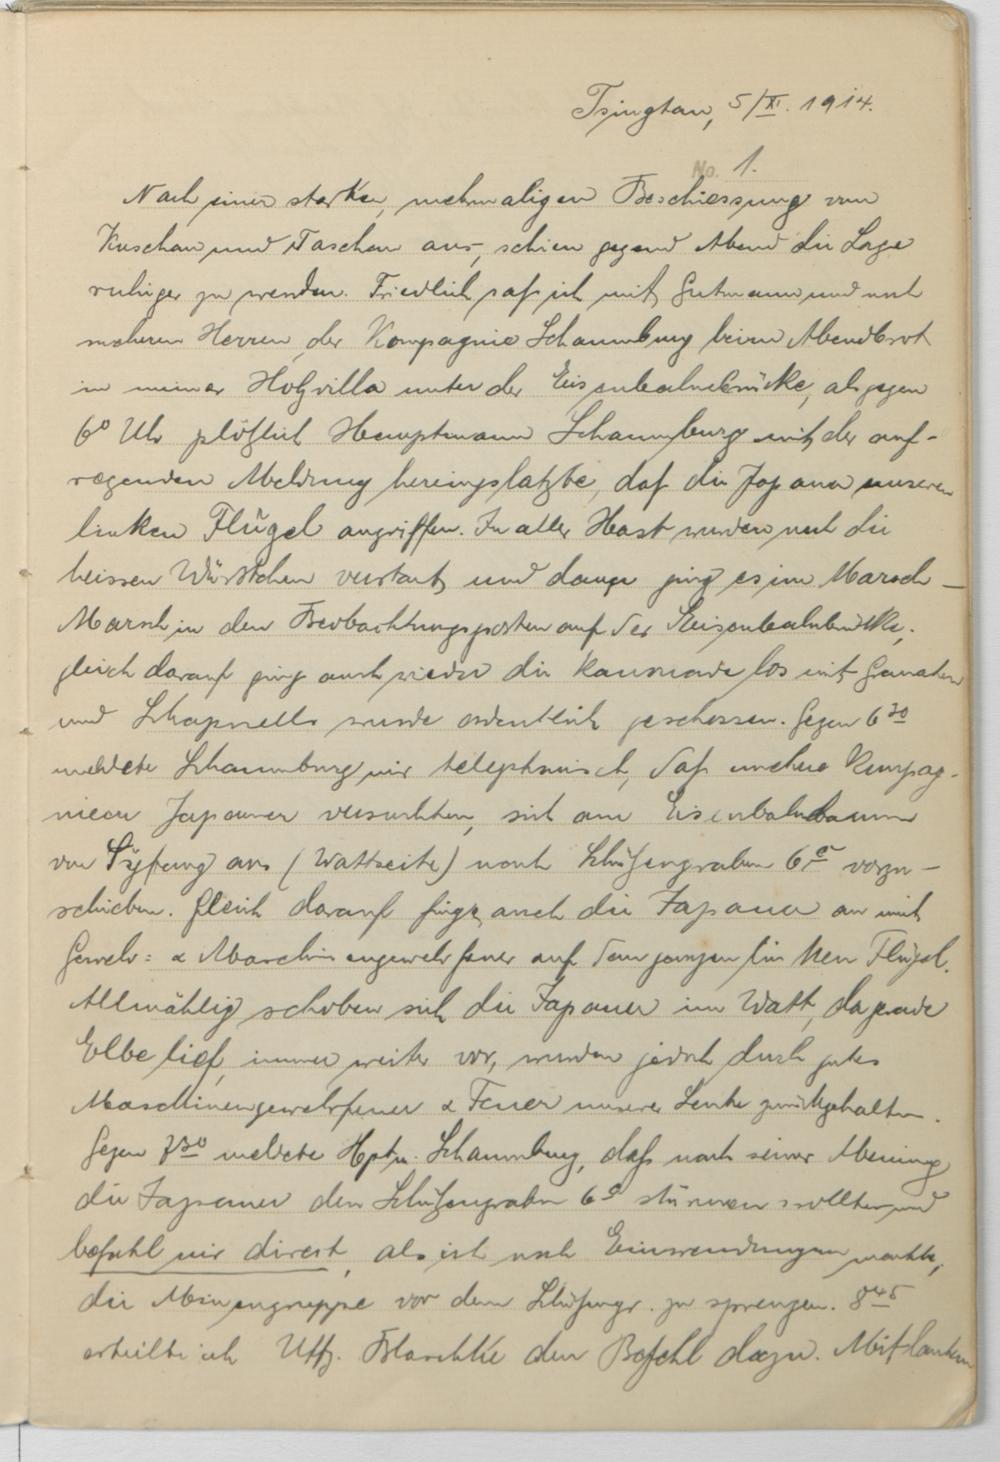 Tsingtau, 5/XI. 1914.
No. 1.
Nach einer starken, mehrmaligen Beschiessung von
Kuschan und Taschan aus, schien gegend Abend die Lage
ruhiger zu werden. Friedlich saß ich mit Gutmann und noch
mehreren Herren der Kompagnie Schaumburg beim Abendbrot
in meiner Holzvilla unter der Eisenbahnbrücke, als gegen
6º Uhr plötzlich Hauptmann Schaumburg mit der auf-
regenden Meldung hereinplatzte, daß die Japaner unseren
linken Flügel angriffen. In aller Hast wurden noch die
heissen Würstchen verstaut und dann ging es im Marsch-
Marsch in den Beobachtungsposten auf der Eisenbahnbrücke,
gleich darauf ging auch wieder die Kanonade los mit Granaten
und Schrapnells wurde ordentlich geschossen. Gegen 6³⁰
meldete Schaumburg mir telephonisch, daß mehrere Kompag-
nieen Japaner versuchten, sich am Eisenbahndamm
von Syfang aus (Wattseite) nach Schützengraben 6 vorzu-
schieben. Gleich darauf fingen auch die Japaner an mit
Gewehr= & Maschinengewehrfeuer auf dem ganzen linken Flügel.
Allmählig schoben sich die Japaner im Watt, da gerade
Ebbe lief, immer weiter vor, wurden jedoch durch gutes
Maschinengewehrfeuer & Feuer unserer Leute zurückgehalten.
Gegen 7³⁰ meldete Hptm. Schaumburg, daß nach seiner Meinung
die Japaner den Schützengraben 6 stürmen wollten und
befahl mir direct, als ich noch Einwendungen machte,
die Minengruppe vor dem Schützengr. zu sprengen. 8⁴⁵
erteilte ich Uffz. Blaschke den Befehl dazu. Mit lautem